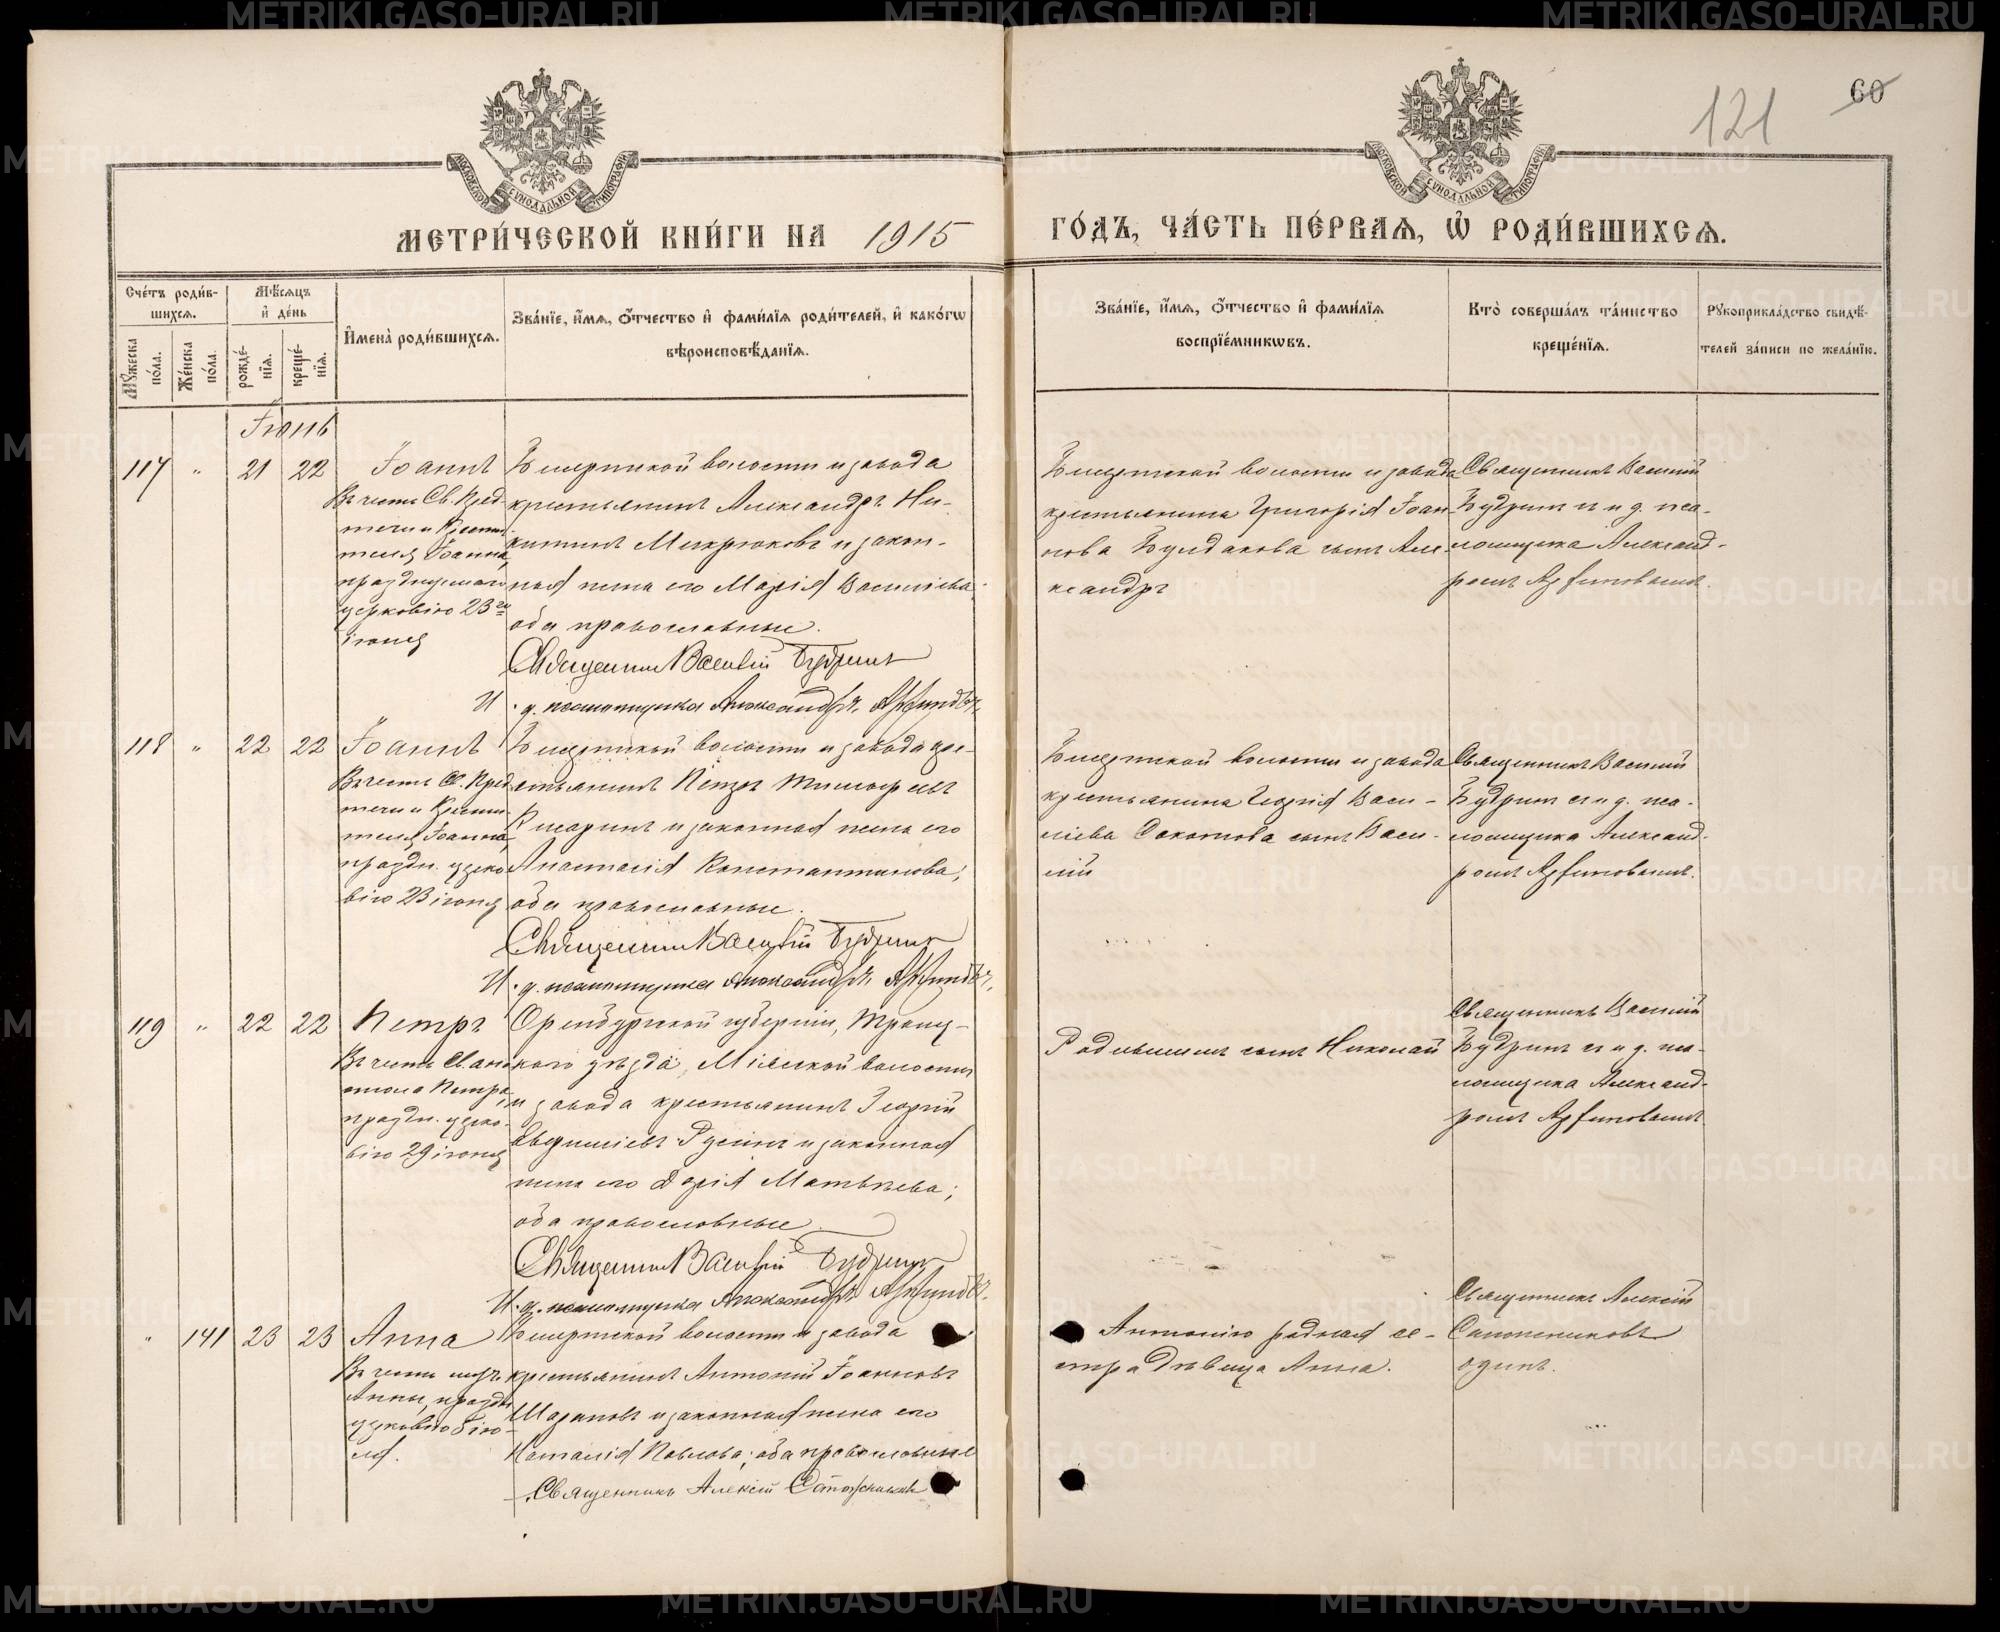 60
121
МОСКОВСКОЙ СѴНОДАЛЬНОЙ ТИПОГРАФІИ
МОСКОВСКОЙ СѴНОДАЛЬНОЙ ТИПОГРАФІИ
МЕТРИ́ЧЕСКОЙ КНИ́ГИ НА 1915 ГО́ДЪ, ЧА́СТЬ ПЕ́РВАѦ, Ѡ҆ РОДИ́ВШИХСѦ.
Сче́тъ роди́в-
шихсѧ.
Мꙋ́жеска по́ла.
Же́нска по́ла.
Мѣ́сѧцъ
и҆ де́нь
рожде́-
нїѧ.
креще́-
нїѧ.
И҆мена̀ роди́вшихсѧ.
Зва́нїе, и҆́мѧ, ѻ҆́тчество и҆ фами́лїѧ роди́телей, и҆ како́гѡ
вѣроисповѣ́данїѧ.
Зва́нїе, и҆́мѧ, ѻ҆́тчество и҆ фами́лїѧ
воспрїе́мникѡвъ.
Кто̀ соверша́лъ та́инство
креще́нїѧ.
Рꙋкоприкла́дство свидѣ́-
телей за́писи по жела́нїю.
Іюнь
117 " 21 22
Іоаннъ
Въ честь Св. Пред-
течи и Крести-
теля Іоанна,
празднуемаго
церковію 23го
іюня
Бисертской волости и завода
крестьянинъ Александръ Ни-
китинъ Микрюковъ и закон-
ная жена его Марія Василіева;
оба православные.
Священникъ Василій Будринъ
И. д. псаломщика Александръ Арфиновъ.
Бисертской волости и завода
крестьянина Григорія Іоан-
нова Булдакова сынъ Але-
ксандръ
Священникъ Василій
Будринъ съ и. д. пса-
ломщика Александ-
ромъ Арфиновымъ.
118 " 22 22
Іоаннъ
Въ честь Св. Пред-
течи и Крести-
теля Іоанна,
праздн. церко-
вію 23 іюня
Бисертской волости и завода кре-
стьянинъ Петръ Тимофеевъ
Кисаринъ и законная жена его
Анастасія Константинова;
оба православные.
Священникъ Василій Будринъ
И. д. псаломщика Александръ Арфиновъ.
Бисертской волости и завода
крестьянина Георгія Васи-
ліева Сокотова сынъ Васи-
лій
Священникъ Василій
Будринъ съ и. д. пса-
ломщика Александ-
ромъ Арфиновымъ.
119 " 22 22
Петръ
Въ честь Св. апо-
стола Петра,
праздн. церко-
вію 29 іюня
Оренбургской губерніи, Троиц-
каго уѣзда, Міасской волости
и завода крестьянинъ Георгій
Русинъ и законная
жена его Дарія Матвѣева;
оба православные.
Священникъ Василій Будринъ
И. д. псаломщика Александръ Арфиновъ.
Родившимъ сынъ Николай
Священникъ Василій
Будринъ съ и. д. пса-
ломщика Александ-
ромъ Арфиновымъ
" 141 23 23
Анна
Въ честь муч.
Анны, праздн.
церковію 5 ію-
ля.
Бисертской волости и завода
крестьянинъ Антоній Іоанновъ
Шарановъ и законная жена его
Наталія Павлова; оба православные
Священникъ Алексій Сапожниковъ
Антонію родная се-
стра дѣвица Анна.
Священникъ Алексій
Сапожниковъ
одинъ.
METRIKI.GASO-URAL.RU